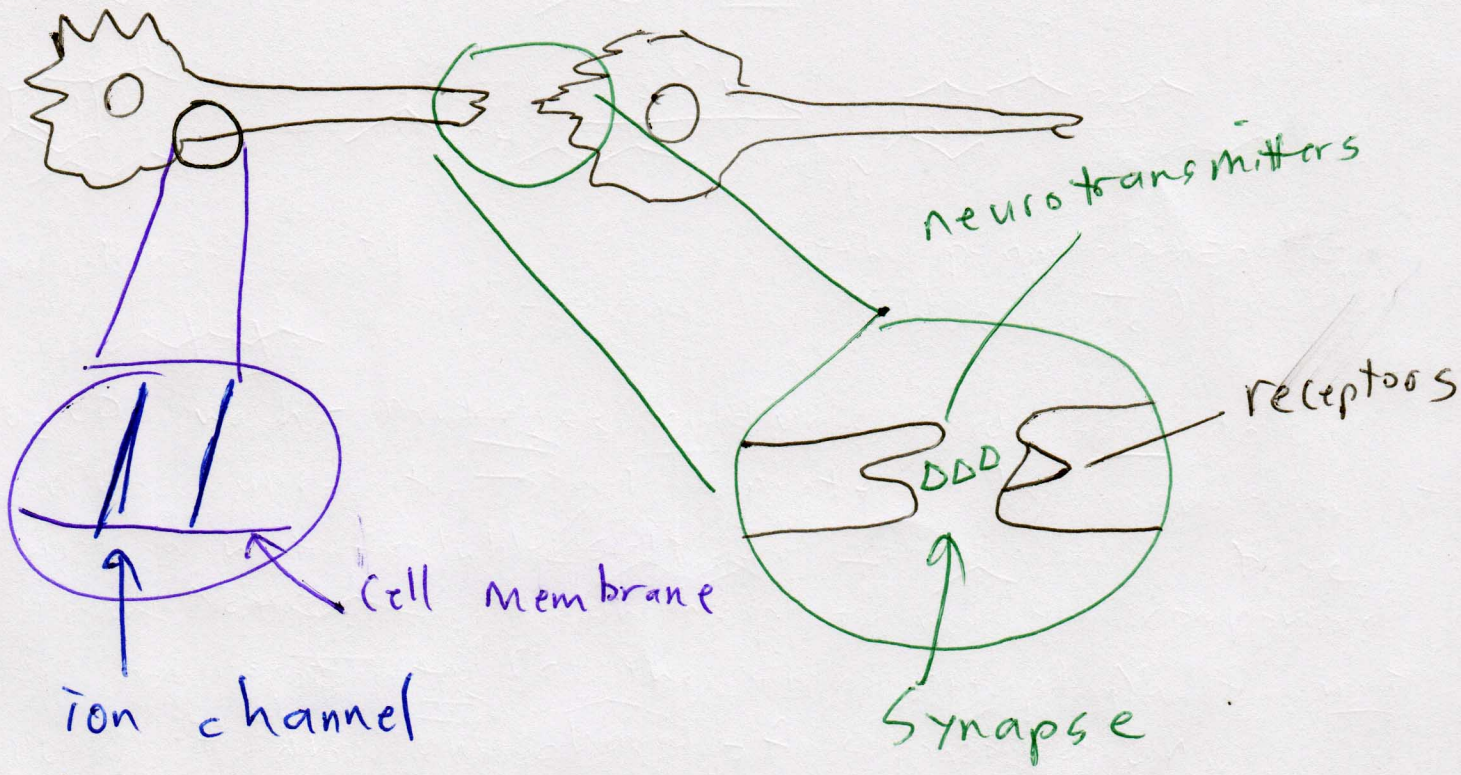 neurotransmitters
receptors
cell membrane
ion channel
synapse